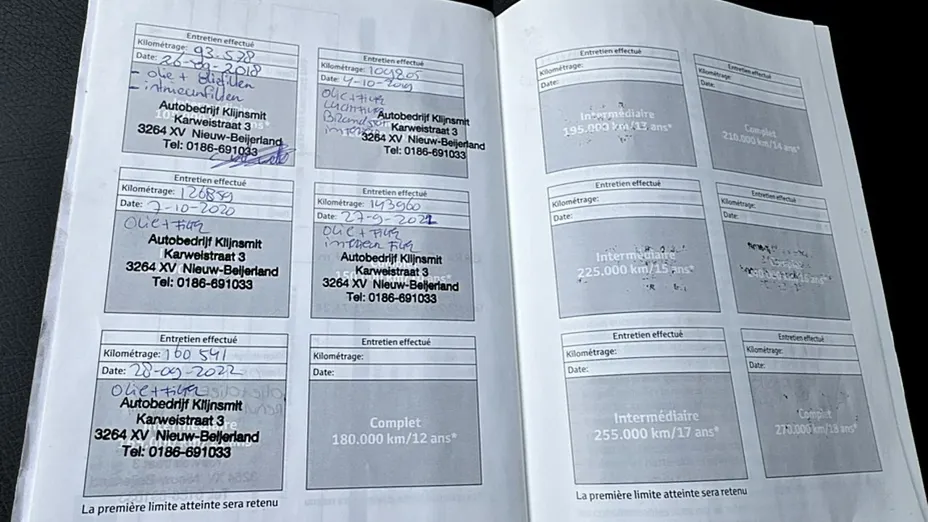 Entretien effectué
Kilométrage: 93.578
Date: 26-09-2018
- olie + oliefilter
- interieurfilter
Autobedrijf Klijnsmit
Karweistraat 3
3264 XV Nieuw-Beijerland
Tel: 0186-691033
Entretien effectué
Kilométrage: 109205
Date: 4-10-2019
olie + filter
Autobedrijf Klijnsmit
Karweistraat 3
3264 XV Nieuw-Beijerland
Tel: 0186-691033
Entretien effectué
Kilométrage: 126859
Date: 7-10-2020
olie + filter
Autobedrijf Klijnsmit
Karweistraat 3
3264 XV Nieuw-Beijerland
Tel: 0186-691033
Entretien effectué
Kilométrage: 143960
Date: 27-9-2021
olie + filter
interieur filter
Autobedrijf Klijnsmit
Karweistraat 3
3264 XV Nieuw-Beijerland
Tel: 0186-691033
Entretien effectué
Kilométrage: 160 541
Date: 28-09-2022
olie + filter
Autobedrijf Klijnsmit
Karweistraat 3
3264 XV Nieuw-Beijerland
Tel: 0186-691033
Entretien effectué
Kilométrage:
Date:
Complet
180.000 km/12 ans*
La première limite atteinte sera retenu
Entretien effectué
Kilométrage:
Date:
Intermédiaire
195.000 km/13 ans*
Entretien effectué
Kilométrage:
Date:
Complet
210.000 km/14 ans*
Entretien effectué
Kilométrage:
Date:
Intermédiaire
225.000 km/15 ans*
Entretien effectué
Kilométrage:
Date:
Entretien effectué
Kilométrage:
Date:
Intermédiaire
255.000 km/17 ans*
Entretien effectué
Kilométrage:
Date:
Complet
270.000 km/18 ans*
La première limite atteinte sera retenu